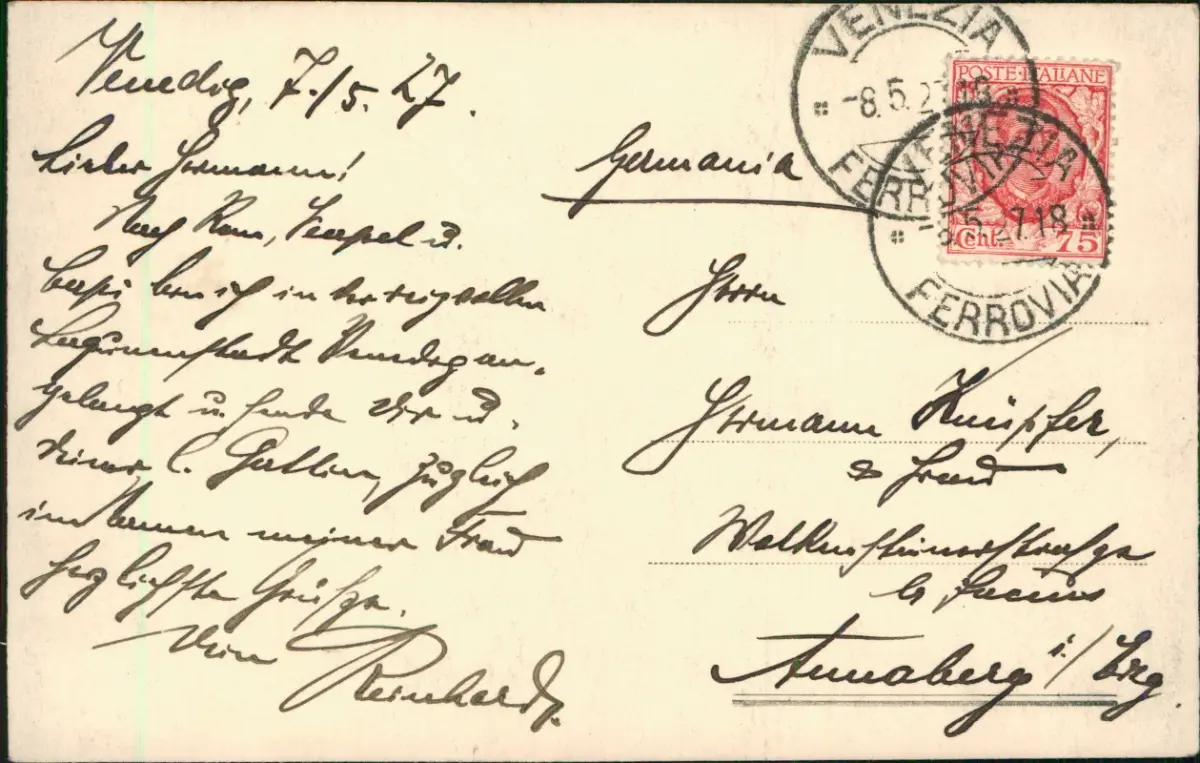 Venedig, 7./5. 27.
Lieber Hermann!
Nach Rom, Neapel u.
Capri bin ich in der reizvollen
Lagunenstadt Venedig an-
gelangt u. sende Dir u.
Deiner l. Gattin, zugleich
im Namen meiner Frau
herzlichste Grüße.
Dein Reinhard
Germania
Herrn
Hermann Küpfer,
& Frau
b
Annaberg i./Erzg.
VENEZIA
-8.5.27.18
FERROVIA
VENEZIA
-8.5.27.18
FERROVIA
POSTE·ITALIANE
Cent. 75